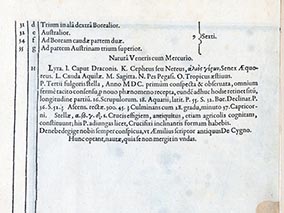 31 d Trium in alâ dextrâ Borealior.
32 e Australior.
34 f Ad Boream caudæ partem duæ.
35 g Ad partem Austrinam trium superior.
5 Sexti.
Naturâ Veneris cum Mercurio.
Lyra. I. Caput Draconis. K. Cepheus seu Nereus, Senex Æquo-
reus. L. Cauda Aquilæ. M. Sagitta. N. Pes Pegasi. O. Tropicus æstiuus.
P. Tertij fulgoris stella, Anno MDC. primum conspecta & obseruata, omnium
ferme tacito consensu, pro nouo phænomeno recepta, eundē adhuc hodie retinet sitū,
longitudine partiū. 16. Scrupulorum. 18. Aquarij, latit. P. 55. S. 32. Bor. Declinat. P.
36. S. 52. Ascens. rectæ. 300. 45. Culminat cum 18. gradu, minuto 37. Capricor-
ni. Stellæ, Crucis effigiem, antiquitus, etiam agricolis cognitam,
constituunt; his P. adiungas licet, Crucifixi inclinantis formam habebis.
De hebdege nobis semper conspicuo, vt Æmilius scriptor antiquus De Cygno.
Hunc optant, nautæ, quia se non mergit in vndas.